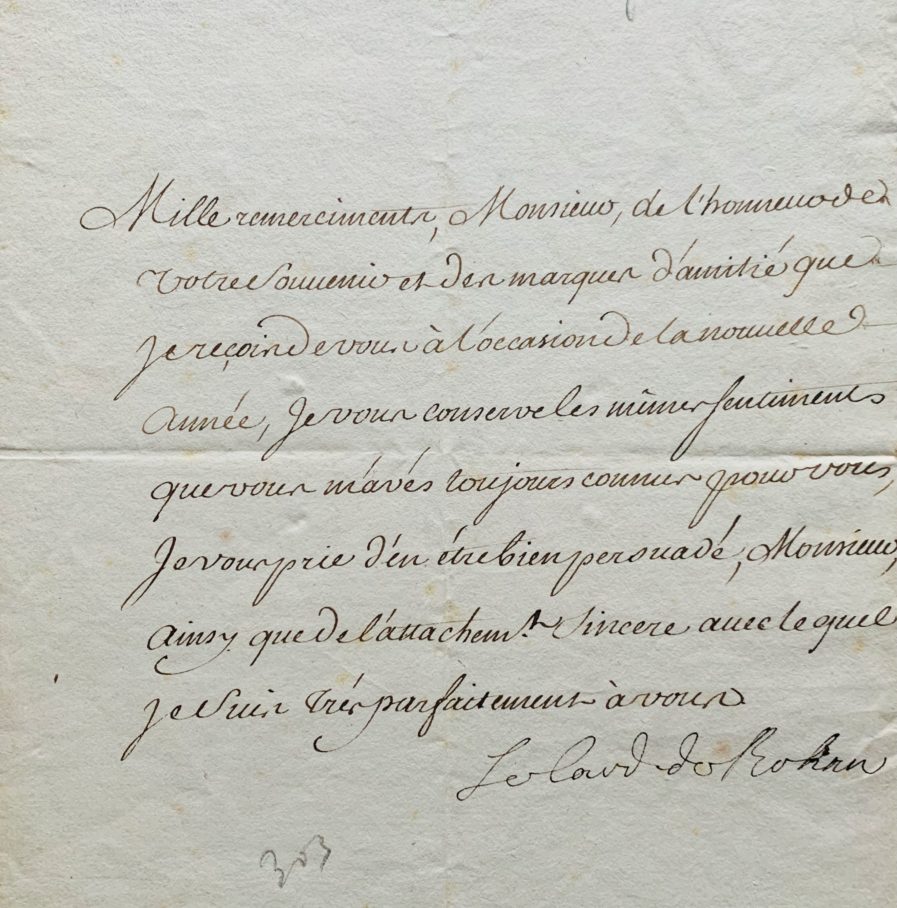 Mille remerciments, Monsieur, de l'honneur de
votre souvenir et des marques d'amitié que
je reçois de vous à l'occasion de la nouvelle
année, je vous conserve les mêmes sentiments
que vous m'avés toujours connus pour vous,
Je vous prie d'en être bien persuadé, Monsieur,
ainsy que de l'attachem.t sincere avec le quel
je suis trés parfaitement à vous
Le Card. de Rohan
303